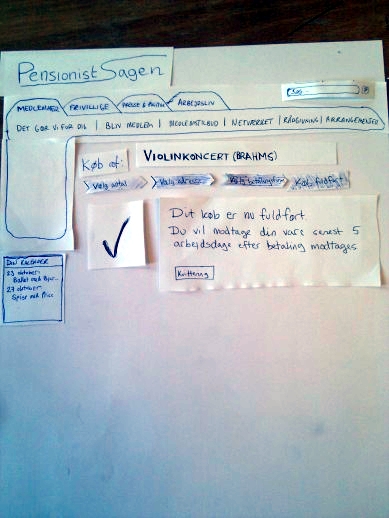 PensionistSagen
Søg...
MEDLEMMER FRIVILLIGE PRESSE & POLITIK ARBEJDSLIV
DET GØR VI FOR DIG | BLIV MEDLEM | MEDLEMSTILBUD | NETVÆRKET | RÅDGIVNING | ARRANGEMENTER
Køb af: VIOLINKONCERT (BRAHMS)
Vælg antal Vælg adresse Vælg betalingsform Køb fuldført
Dit køb er nu fuldført.
Du vil modtage din vare senest 5
arbejdsdage efter betaling modtages.
Kvittering
DIN KALENDER
23 oktober
Ballet med
27 oktober